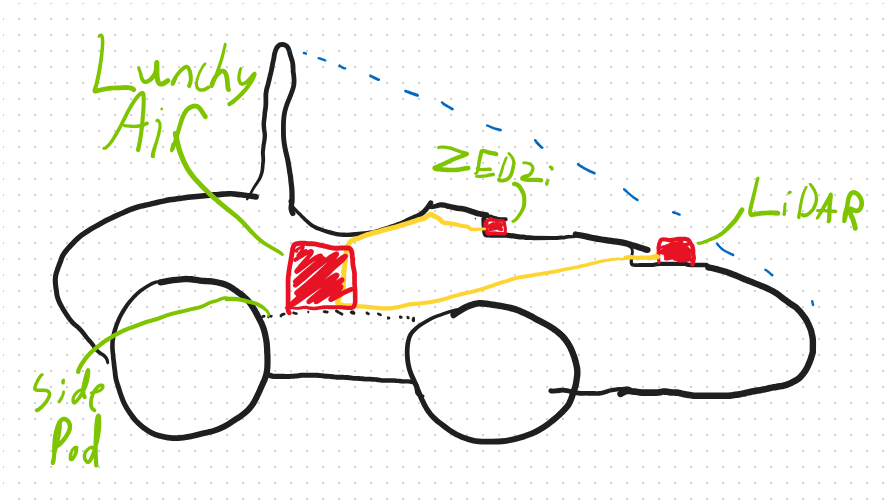 Lunchy
Air
ZED2i
LiDAR
Side
Pod